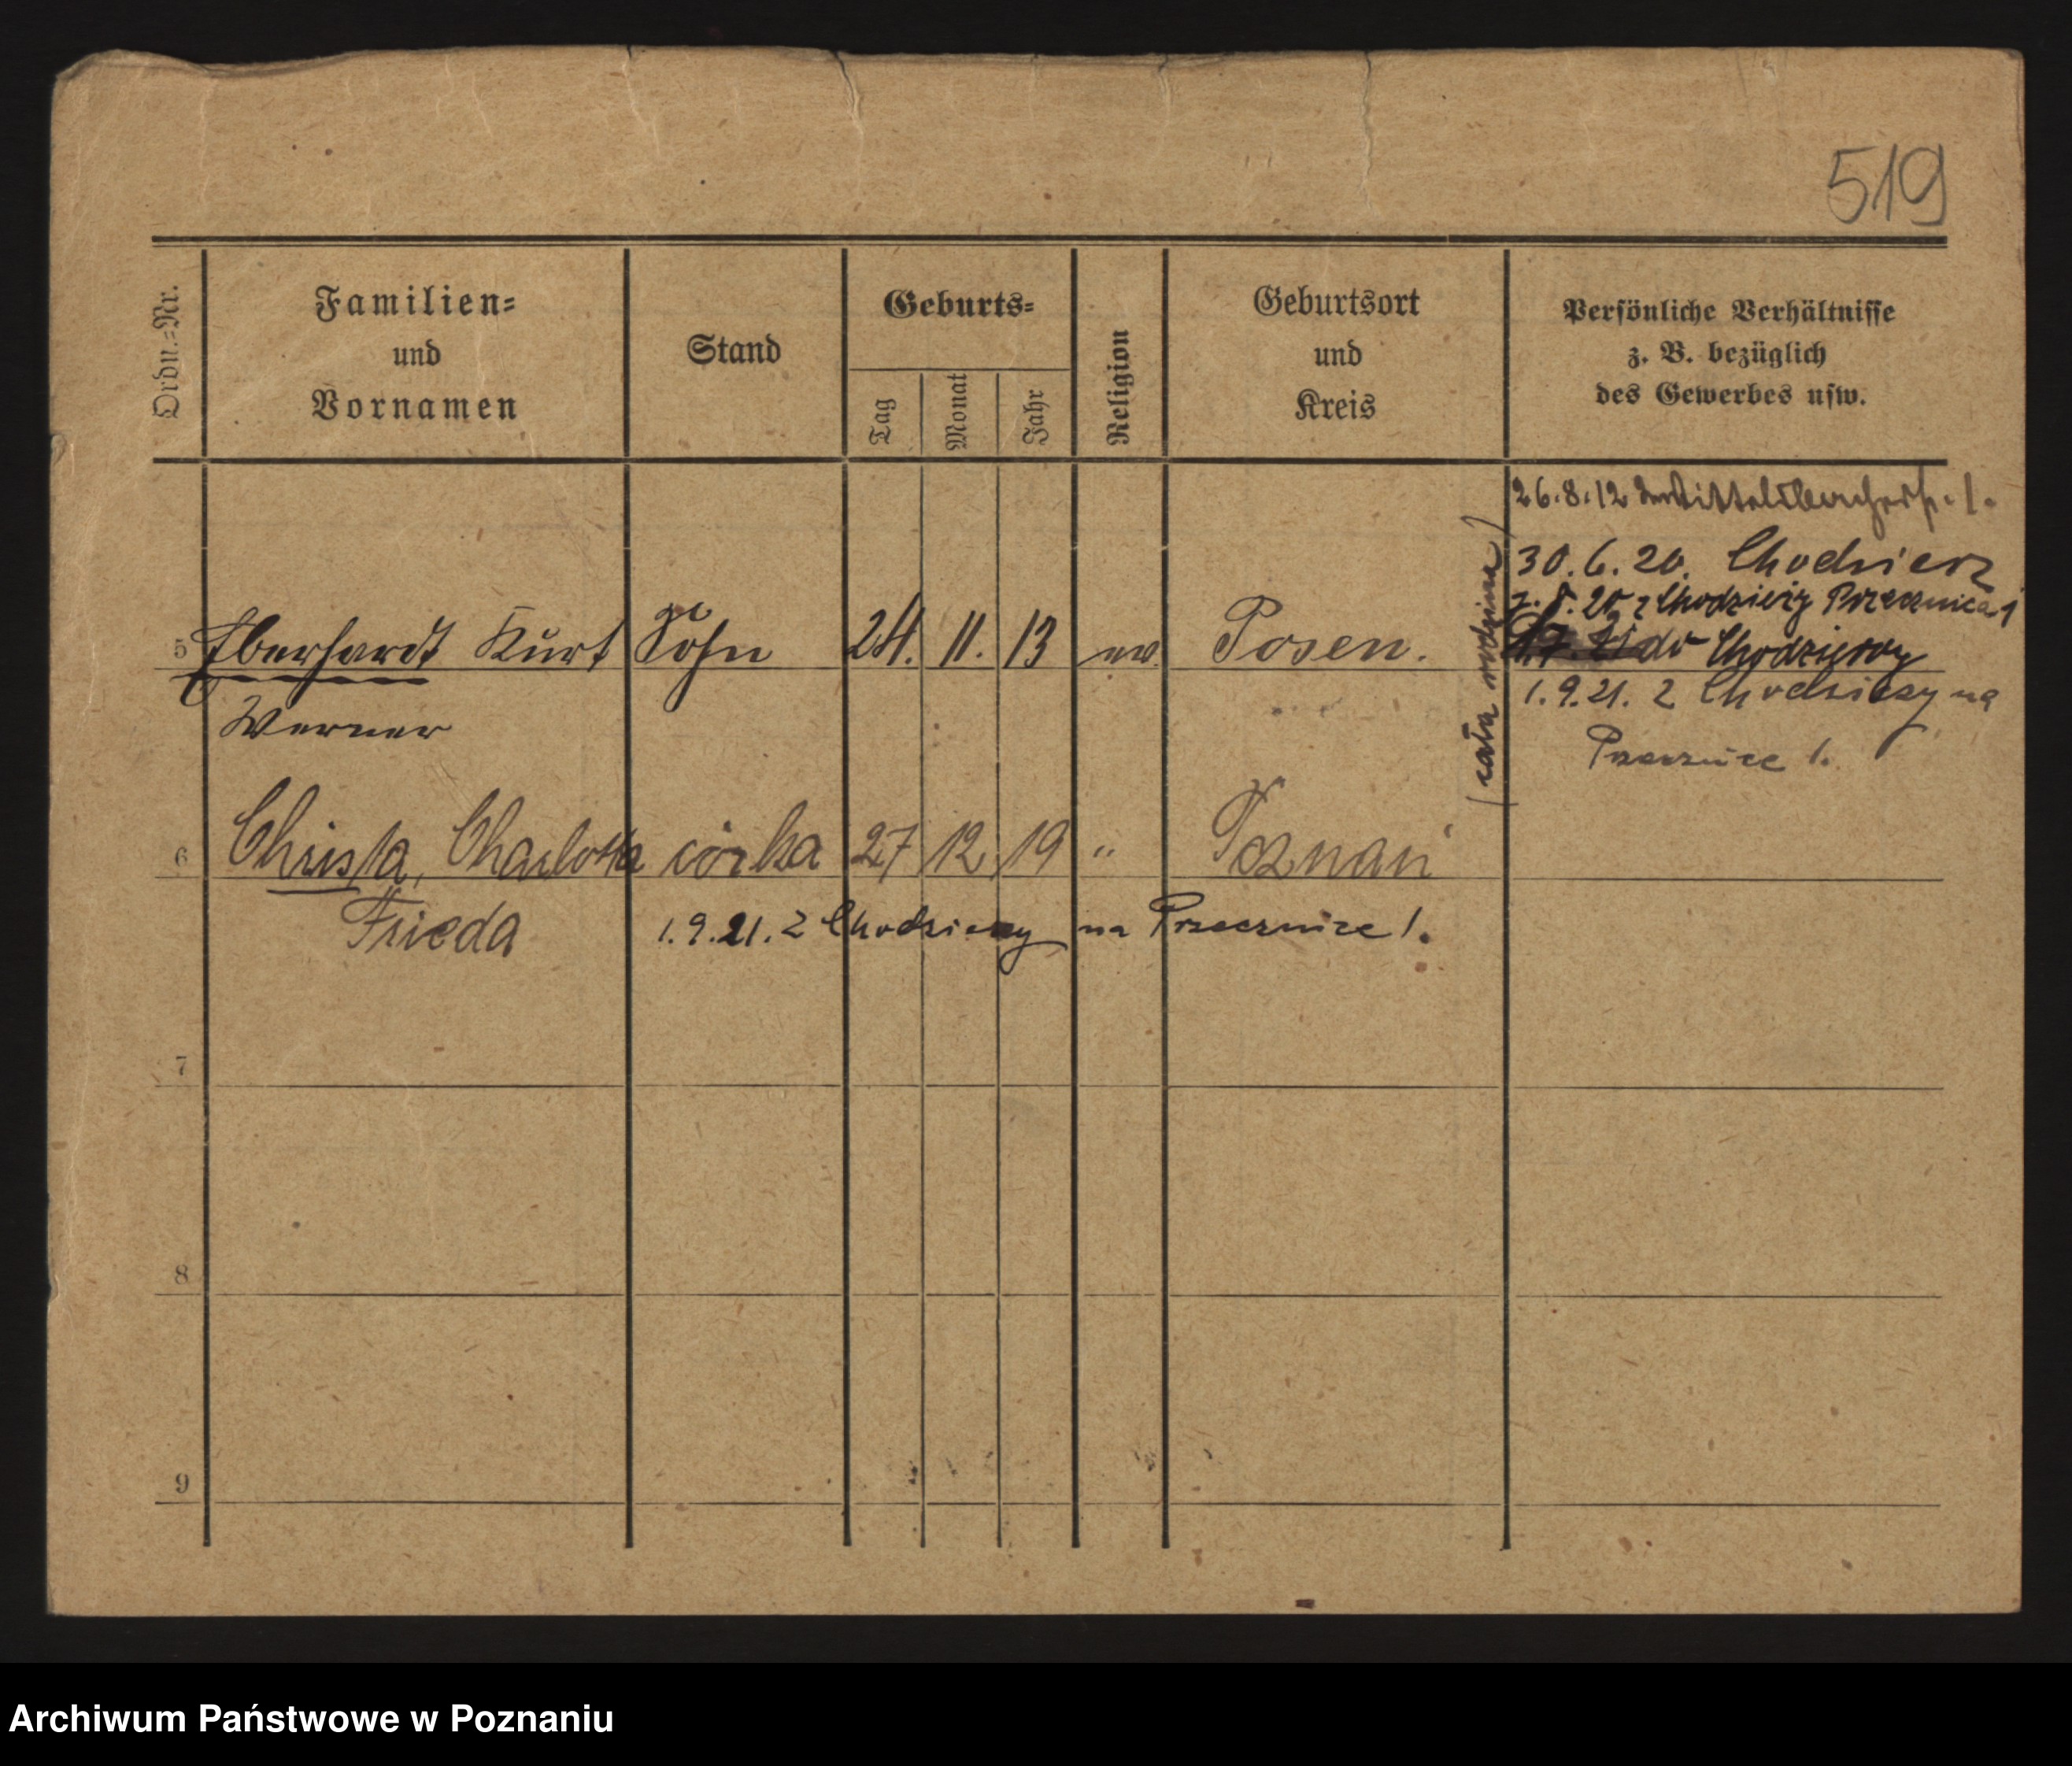 519
Ordn.=Nr.
Familien=
und
Vornamen
Stand
Geburts=
Tag
Monat
Jahr
Religion
Geburtsort
und
Kreis
Persönliche Verhältnisse
z. B. bezüglich
des Gewerbes usw.
26.8.12
30.6.20. Chodzież
8.20 z Chodzieży Przecznica 1
do Chodzieży
1.9.21. z Chodzieży na
Przecznice 1.
(cała rodzina)
5 Eberhardt Kurt Sohn 24. 11. 13 ev. Posen.
Werner
6 Christa, Charlotta córka 27 12 19 " Poznań
Frieda 1.9.21. z Chodzieży na Przecznice 1.
7
8
9
Archiwum Państwowe w Poznaniu